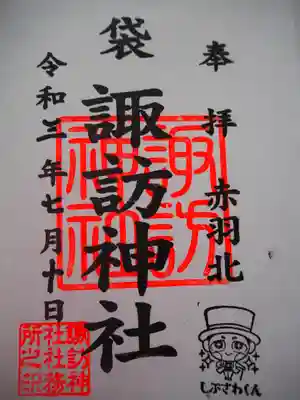 奉拝 赤羽北
袋 諏訪神社
令和三年七月十日
諏訪神社
諏訪神社社務所之印
しぶさわくん